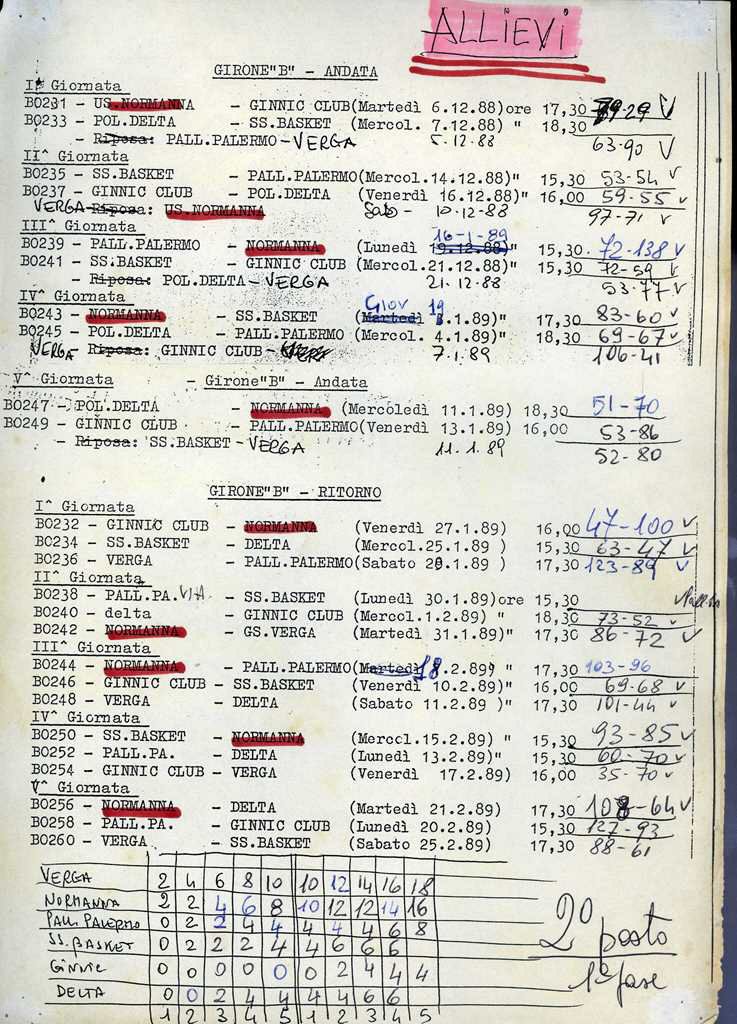 ALLIEVI
GIRONE"B" - ANDATA
I^ Giornata
B0231 - US.NORMANNA - GINNIC CLUB(Martedì 6.12.88)ore 17,30 79-29 V
B0233 - POL.DELTA - SS.BASKET (Mercol. 7.12.88) " 18,30
- Riposa: PALL.PALERMO - VERGA 5.12.88 63-90 V
II^ Giornata
B0235 - SS.BASKET - PALL.PALERMO(Mercol.14.12.88)" 15,30 53-54 V
B0237 - GINNIC CLUB - POL.DELTA (Venerdì 16.12.88)" 16,00 59-55 V
VERGA - Riposa: US.NORMANNA Sab - 10-12-88 97-71 V
III^ Giornata 16-1-89
B0239 - PALL.PALERMO - NORMANNA (Lunedì 19.12.88)" 15,30 72-138 V
B0241 - SS.BASKET - GINNIC CLUB (Mercol.21.12.88)" 15,30 72-59 V
- Riposa: POL.DELTA - VERGA 21.12.88 53-77 V
IV^ Giornata Giov 19
B0243 - NORMANNA - SS.BASKET (Martedì 3.1.89)" 17,30 83-60 V
B0245 - POL.DELTA - PALL.PALERMO (Mercol. 4.1.89)" 18,30 69-67 V
VERGA - Riposa: GINNIC CLUB - VERGA 7.1.89 106-41
V^ Giornata - Girone"B" - Andata
B0247 - POL.DELTA - NORMANNA (Mercoledì 11.1.89) 18,30 51-70
B0249 - GINNIC CLUB - PALL.PALERMO(Venerdì 13.1.89) 16,00 53-86
- Riposa: SS.BASKET - VERGA 11.1.89 52-80
GIRONE"B" - RITORNO
I^ Giornata
B0232 - GINNIC CLUB - NORMANNA (Venerdì 27.1.89) 16,00 47-100 V
B0234 - SS.BASKET - DELTA (Mercol.25.1.89 ) 15,30 63-47 V
B0236 - VERGA - PALL.PALERMO(Sabato 28.1.89 ) 17,30 123-89 V
II^ Giornata
B0238 - PALL.PA. - SS.BASKET (Lunedì 30.1.89)ore 15,30
B0240 - delta - GINNIC CLUB (Mercol.1.2.89) " 18,30 73-52 V
B0242 - NORMANNA - GS.VERGA (Martedì 31.1.89)" 17,30 86-72 V
III^ Giornata
B0244 - NORMANNA - PALL.PALERMO(Martedì 18.2.899) " 17,30 103-96
B0246 - GINNIC CLUB - SS.BASKET (Venerdì 10.2.89) " 16,00 69-68 V
B0248 - VERGA - DELTA (Sabato 11.2.89 )" 17,30 101-44 V
IV^ Giornata
B0250 - SS.BASKET - NORMANNA (Mercol.15.2.89) " 15,30 93-85 V
B0252 - PALL.PA. - DELTA (Lunedì 13.2.89)" 15,30 60-70 V
B0254 - GINNIC CLUB - VERGA (Venerdì 17.2.89) 16,00 35-70 V
V^ Giornata
B0256 - NORMANNA - DELTA (Martedì 21.2.89) 17,30 108-64 V
B0258 - PALL.PA. - GINNIC CLUB (Lunedì 20.2.89) 15,30 127-93
B0260 - VERGA - SS.BASKET (Sabato 25.2.89) 17,30 88-61
VERGA 2 4 6 8 10 10 12 14 16 18
NORMANNA 2 2 4 6 8 10 12 12 14 16
PALL. PALERMO 0 2 2 4 4 4 4 4 6 8
SS. BASKET 0 2 2 2 4 4 6 6 6
GINNIC 0 0 0 0 0 0 2 4 4 4
DELTA 0 0 2 4 4 4 4 6 6
1 2 3 4 5 1 2 3 4 5
2° posto
1° fase